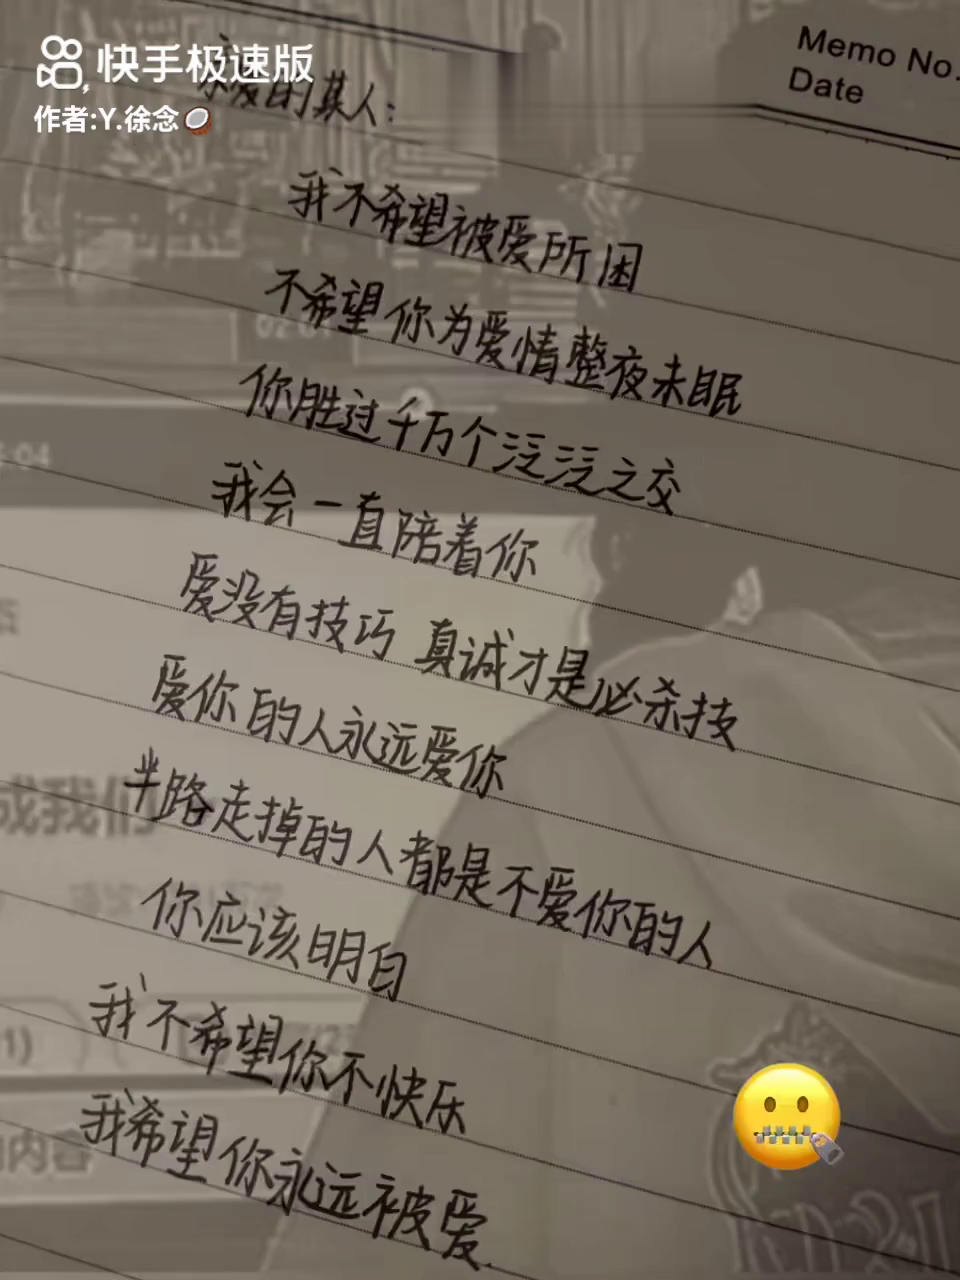 快手极速版
作者:Y.徐念
Memo No.
Date
亲爱的某人:
我不希望被爱所困
不希望你为爱情整夜未眠
你胜过千万个泛泛之交
我会一直陪着你
爱没有技巧 真诚才是必杀技
爱你的人永远爱你
半路走掉的人都是不爱你的人
你应该明白
我不希望你不快乐
我希望你永远被爱
成我们
内容